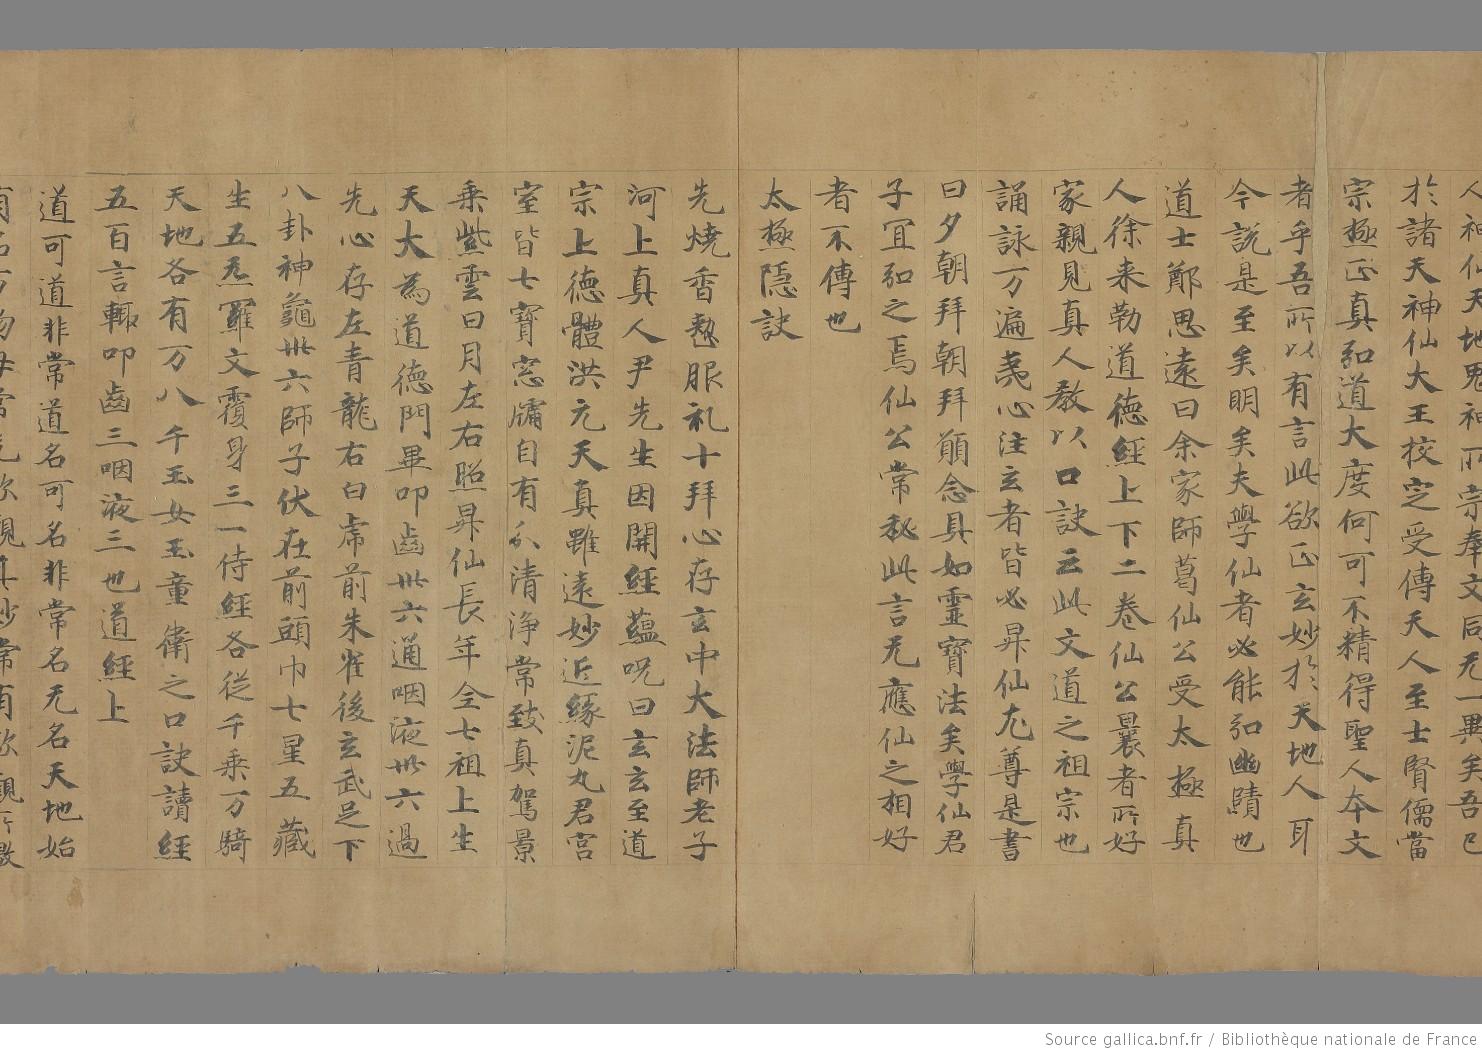 人神仙天地鬼神所宗奉文同无一異矣吾已
於諸天神仙大王校定受傳天人至士賢儒當
宗極正真弘道大度何可不精得聖人本文
者乎吾所以有言此欲正玄妙於天地人耳
今說是至矣明矣夫學仙者必能弘幽賾也
道士鄭思遠曰余家師葛仙公受太極真
人徐来勒道德經上下二卷仙公曩者所好
家親見真人教以口訣云此文道之祖宗也
誦詠万遍夷心注玄者皆必昇仙尤尊是書
日夕朝拜朝拜願念具如靈寶法矣學仙君
子冝弘之焉仙公常秘此言无應仙之相好
者不傳也
太極隱訣
先燒香整服礼十拜心存玄中大法師老子
河上真人尹先生因開經蘊呪曰玄玄至道
宗上德體洪元天真雖遠妙近緣泥丸君宮
室皆七寶窓牖自有分清浄常致真駕景
乘紫雲日月左右照昇仙長年全七祖上生
天大為道德門畢叩齒卅六通咽液卅六過
先心存左青龍右白虎前朱雀後玄武足下
八卦神龜卅六師子伏在前頭巾七星五藏
生五炁羅文覆身三一侍經各從千乘万騎
天地各有万八千玉女玉童衛之口訣讀經
五百言輙叩齒三咽液三也道經上
道可道非常道名可名非常名无名天地始
有名万物母常无欲觀其妙常有欲觀所徼